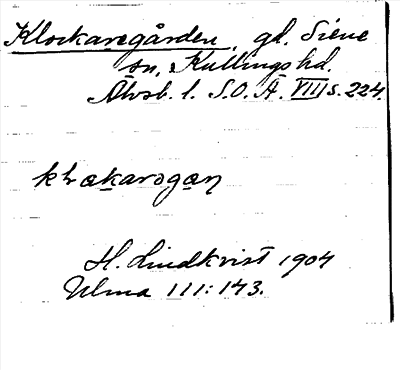 Klockaregården, gd. Siene
sn, Kullings hd.
Älvsb. l. S.O.Ä. VIII s. 224.
H. Lindkvist 1904
Ulma 111:143.